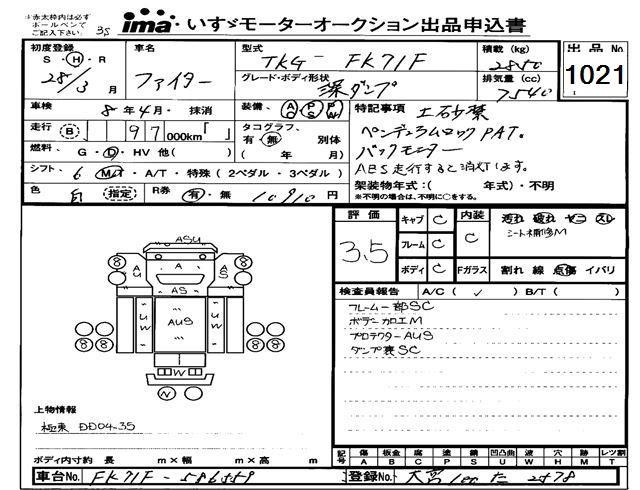 ＊赤太枠内は必ず
ボールペンで
ご記入下さい
35
ima いすゞモーターオークション出品申込書
初度登録
S ・ H ・ R
28/3 月
車名
ファイター
型式
TKG- FK71F
グレード・ボディ形状
深ダンプ
積載 (kg)
2850
排気量 (cc)
7540
出品 No
1021
車検 8 年 4 月 ・ 抹消
走行 B 9 7 000km「 」
燃料. G ・ D ・ HV 他( )
装備. AC PS PW
タコグラフ.
有 ・ 無 別体
( 年 月)
特記事項 土砂禁
ペンデュラムロック PAT.
バックモニター
ABS走行すると消灯します。
架装物年式:( 年式)・不明
※不明の場合は、不明に○をする。
シフト. 6 M/T ・ A/T ・ 特殊 (2ペダル ・ 3ペダル)
色 白 指定 R券 有 ・ 無 10910 円
評価
3.5
キャブ C
フレーム C
ボディ C
内装
C
Fガラス
汚れ 破れ ヤニ スレ
シート補修M
割れ 線 点傷 イバリ
検査員報告 A/C ( ✓ ) B/T ( )
フレーム一部SC
ボデー加工M
プロテクターAUS
ダンプ裏SC
ASU
8 8 AU A AS 8 8
AS
UW AUS UW
8 8 8 8
W
N
上物情報
極東 DD04-35
ボディ内寸約 長 m × 幅 m × 高 m
記号 傷 板金 腐 塗 錆 凹凸曲 波 穴 跡 レツ割
A B C P S U W H M T
車台No. FK71F-586559
登録No. 大宮 100 た 2578